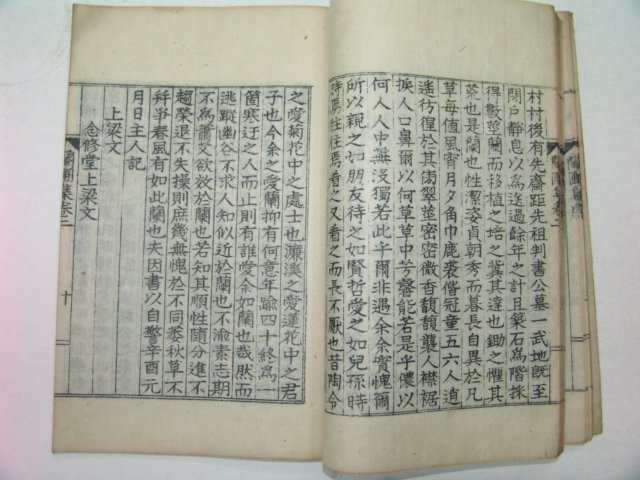 村村後有先齋距先祖判書公墓一武地旣至
閉戶靜息以爲送過餘年之計且築石爲階採
得數莖蘭而移植之培之糞其達也鋤之懼其
荒也是蘭也性潔姿貞朝秀而暮長自異於凡
草每値風宵月夕角巾鹿裘偕冠童五六人逍
遙彷徨於其傍翠莖密密微香馥馥襲人襟裾
掞人口鼻爾以何草草中芳馨能若是乎儂以
何人人中無没獨若此乎爾非遇余余實愧爾
所以親之如朋友待之如賢哲愛之如兒孫時
時焉徃徃焉又看之而長不厭也昔陶令
之愛菊花中之處士也濂溪之愛蓮花中之君
子也今余之愛蘭抑有何意年踰四十終爲一
箇寒迂之人而止則有誰愛余如蘭也哉然而
逃蹤幽谷不求人知似近於蘭也不渝素志期
不爲蕭艾欲放於蘭也若知其順性隨分進不
趨榮退不失操則庶幾無愧於不同萎秋草不
幷爭春風有如此蘭也夫因書以自警辛酉元
月日主人記
上梁文
念修堂上梁文
蘭圃集卷二
十